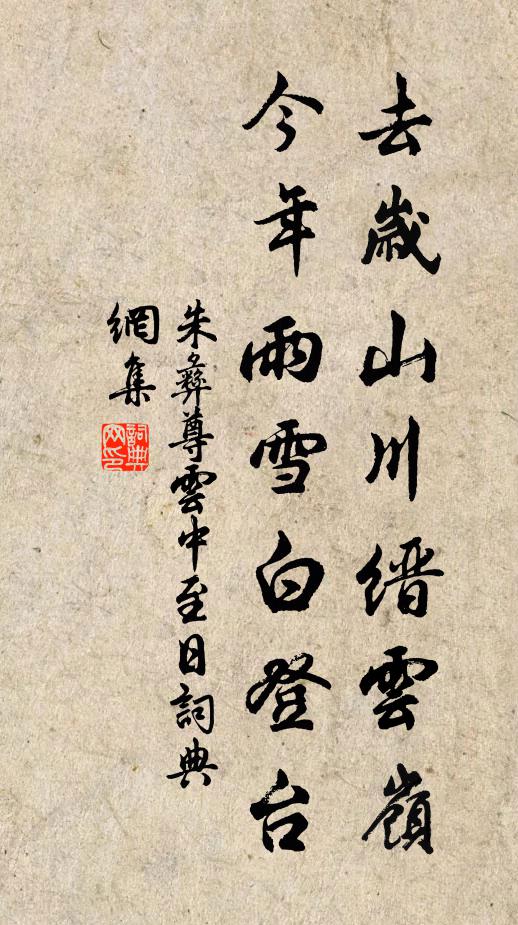 去歲山川縉雲嶺
今年雨雪白登台
朱彝尊雲中至日詞典
網集
詞典
网印